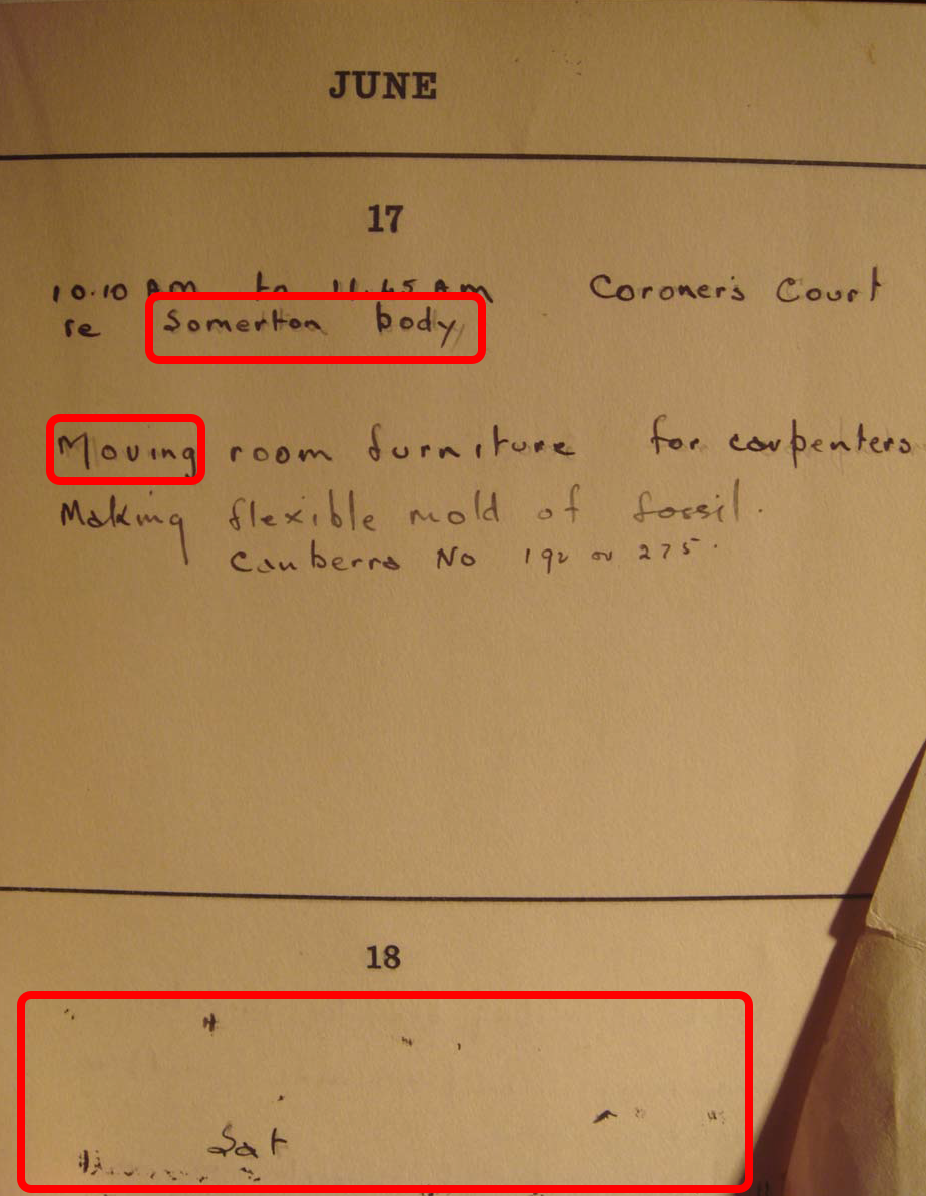 JUNE
17
10.10 AM to 11.45 AM Coroner's Court
re Somerton body
Moving room furniture for carpenters
Making flexible mold of fossil.
Canberra No 192 or 275.
18
Sat